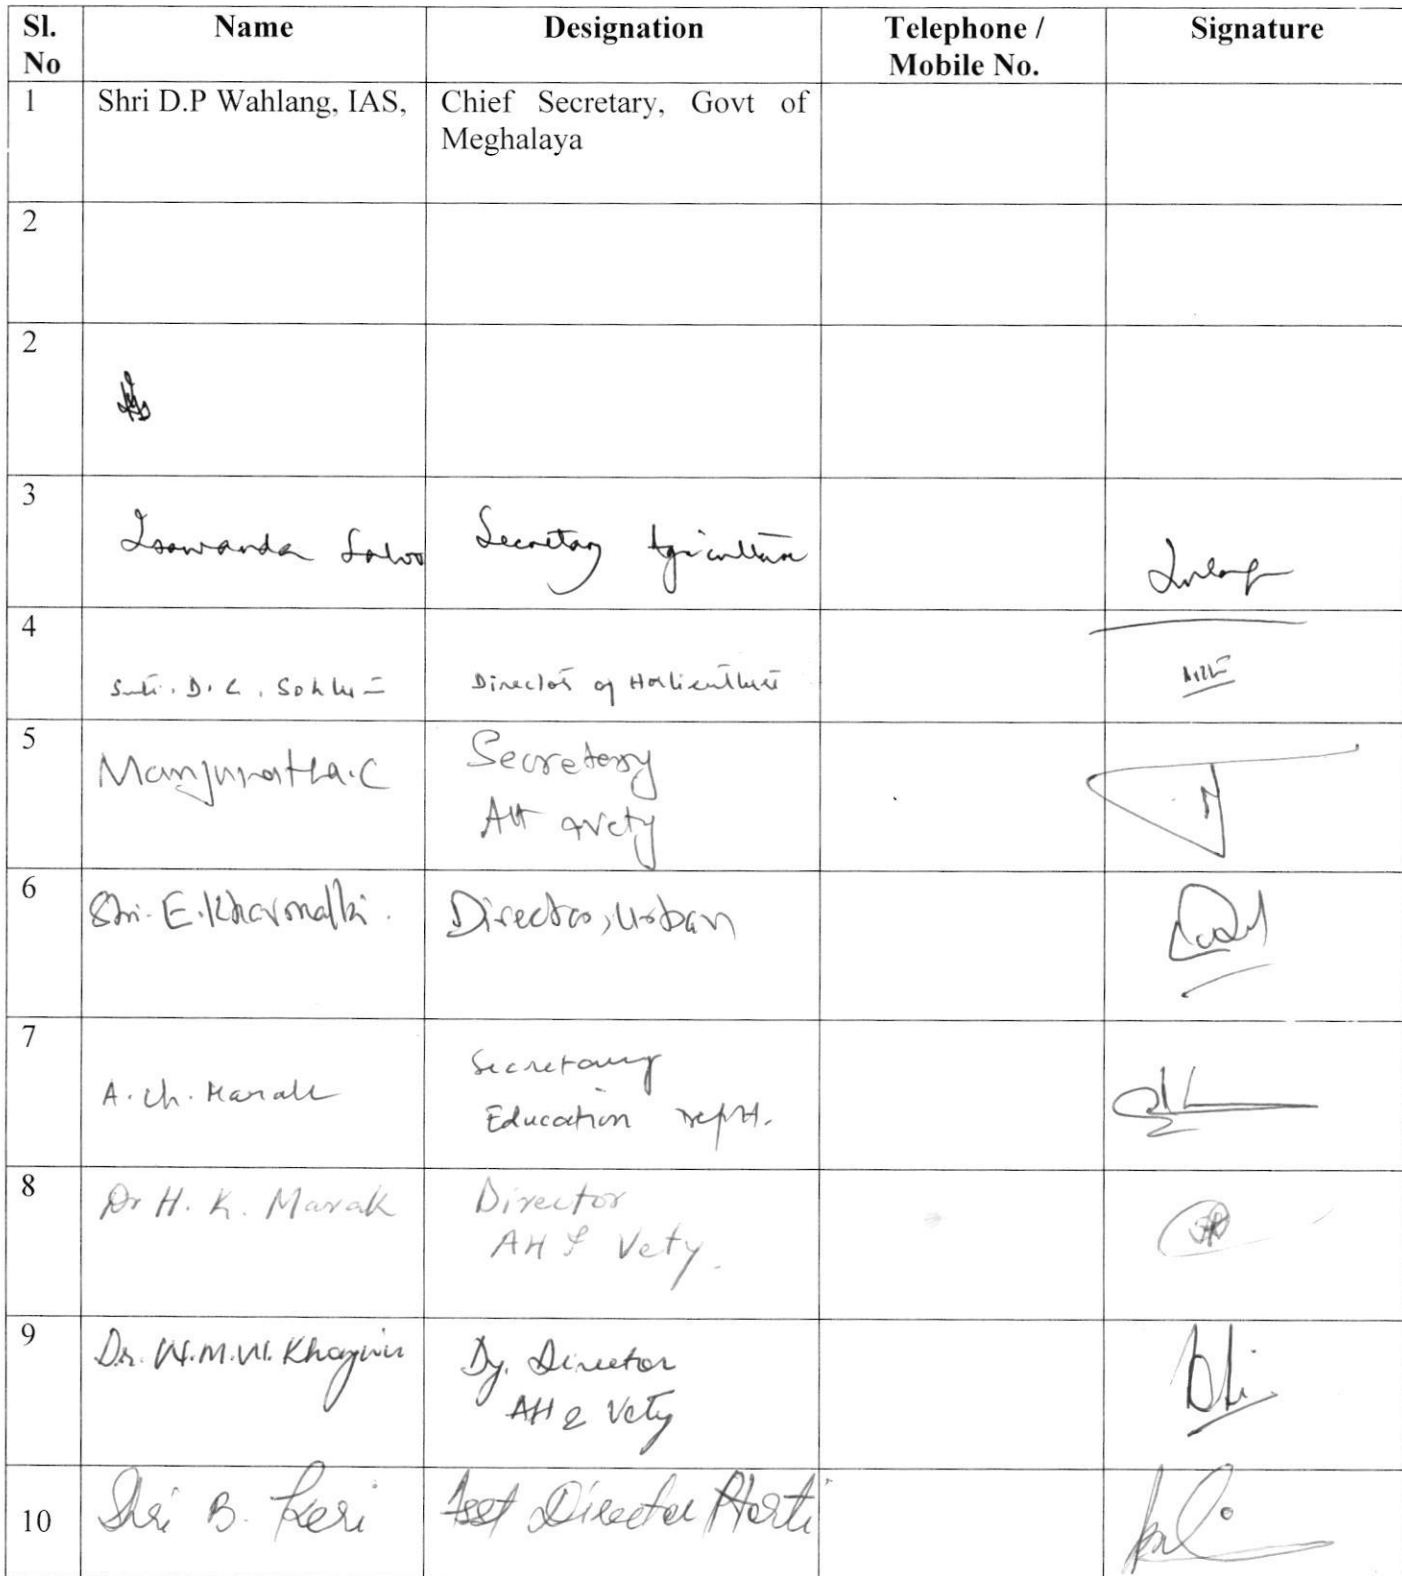 Sl. No Name Designation Telephone / Mobile No. Signature
1 Shri D.P Wahlang, IAS, Chief Secretary, Govt of Meghalaya
2
2
3 Isawanda Laloo Secretary Agriculture
4 Smti. D. L. Director of Horticulture
5 Manjunatha.C Secretary
AH & Vety
6 Shri. E. Kharmalki. Director, Urban
7 A. Ch. Marak Secretary
Education Deptt.
8 Dr H. K. Marak Director
AH & Vety.
9 Dr. Dy. Director
AH & Vety
10 Shri B. Keri Asst Director Horti